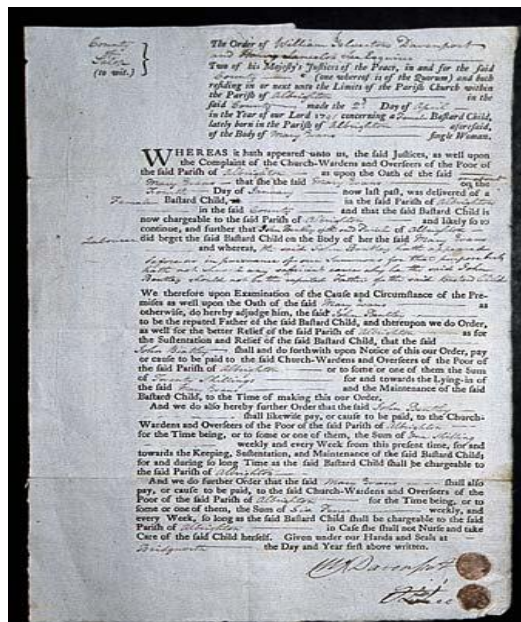 County
of
Salop
(to wit.)
The Order of William Yelverton Davenport
and Henry Lancelot Lee Esquires
Two of his Majesty's Justices of the Peace, in and for the said
County (one whereof is of the Quorum) and both
residing in or next unto the Limits of the Parish Church within
the Parish of Albrighton in the
said County made the 2d Day of April
in the Year of our Lord concerning a Female Bastard Child,
lately born in the Parish of Albrighton aforesaid,
of the Body of Mary Evans single Woman.
WHEREAS it hath appeared unto us, the said Justices, as well upon
the Complaint of the Church-Wardens and Overseers of the Poor of
the said Parish of Albrighton as upon the Oath of the said
Mary Evans that she the said Mary Evans on the
Day of January now last past, was delivered of a
Female Bastard Child, in the Parish of Albrighton
in the said County and that the said Bastard Child is
now chargeable to the said Parish of Albrighton and likely so to
continue, and further that John Bentley of the said Parish of Albrighton
Labourer did beget the said Bastard Child on the Body of her the said Mary Evans
and whereas, the said John Bentley hath appeared
before us in pursuance of our Summons for that purpose but
hath not shewn any sufficient cause why he the said John
Bentley should not be the reputed Father of the said Bastard Child
We therefore upon Examination of the Cause and Circumstance of the Pre-
mises as well upon the Oath of the said Mary Evans as
otherwise, do hereby adjudge him, the said John Bentley
to be the reputed Father of the said Bastard Child, and thereupon we do Order,
as well for the better Relief of the said Parish of Albrighton as for
the Sustentation and Relief of the said Bastard Child, that the said
John Bentley shall and do forthwith upon Notice of this our Order, pay
or cause to be paid to the said Church-Wardens and Overseers of the Poor of
the said Parish of Albrighton or to some or one of them the Sum
of Twenty Shillings for and towards the Lying-in of
the said Mary Evans and the Maintenance of the said
Bastard Child, to the Time of making this our Order.
And we do also hereby further Order that the said John Bentley
shall likewise pay, or cause to be paid, to the Church-
Wardens and Overseers of the Poor of the said Parish of Albrighton
for the Time being, or to some or one of them, the Sum of One Shilling
weekly and every Week from this present time, for and
towards the Keeping, Sustentation, and Maintenance of the said Bastard Child;
for and during so long Time as the said Bastard Child shall be chargeable to
the said Parish of Albrighton
And we do further Order that the said Mary Evans shall also
pay, or cause to be paid, to the said Church-Wardens and Overseers of the
Poor of the said Parish of Albrighton for the Time being, or to
some or one of them, the Sum of Six Pence weekly, and
every Week, so long as the said Bastard Child shall be chargeable to the said
Parish of Albrighton in Case she shall not Nurse and take
Care of the said Child herself. Given under our Hands and Seals at
Bridgnorth the Day and Year first above written.
Davenport
Lee